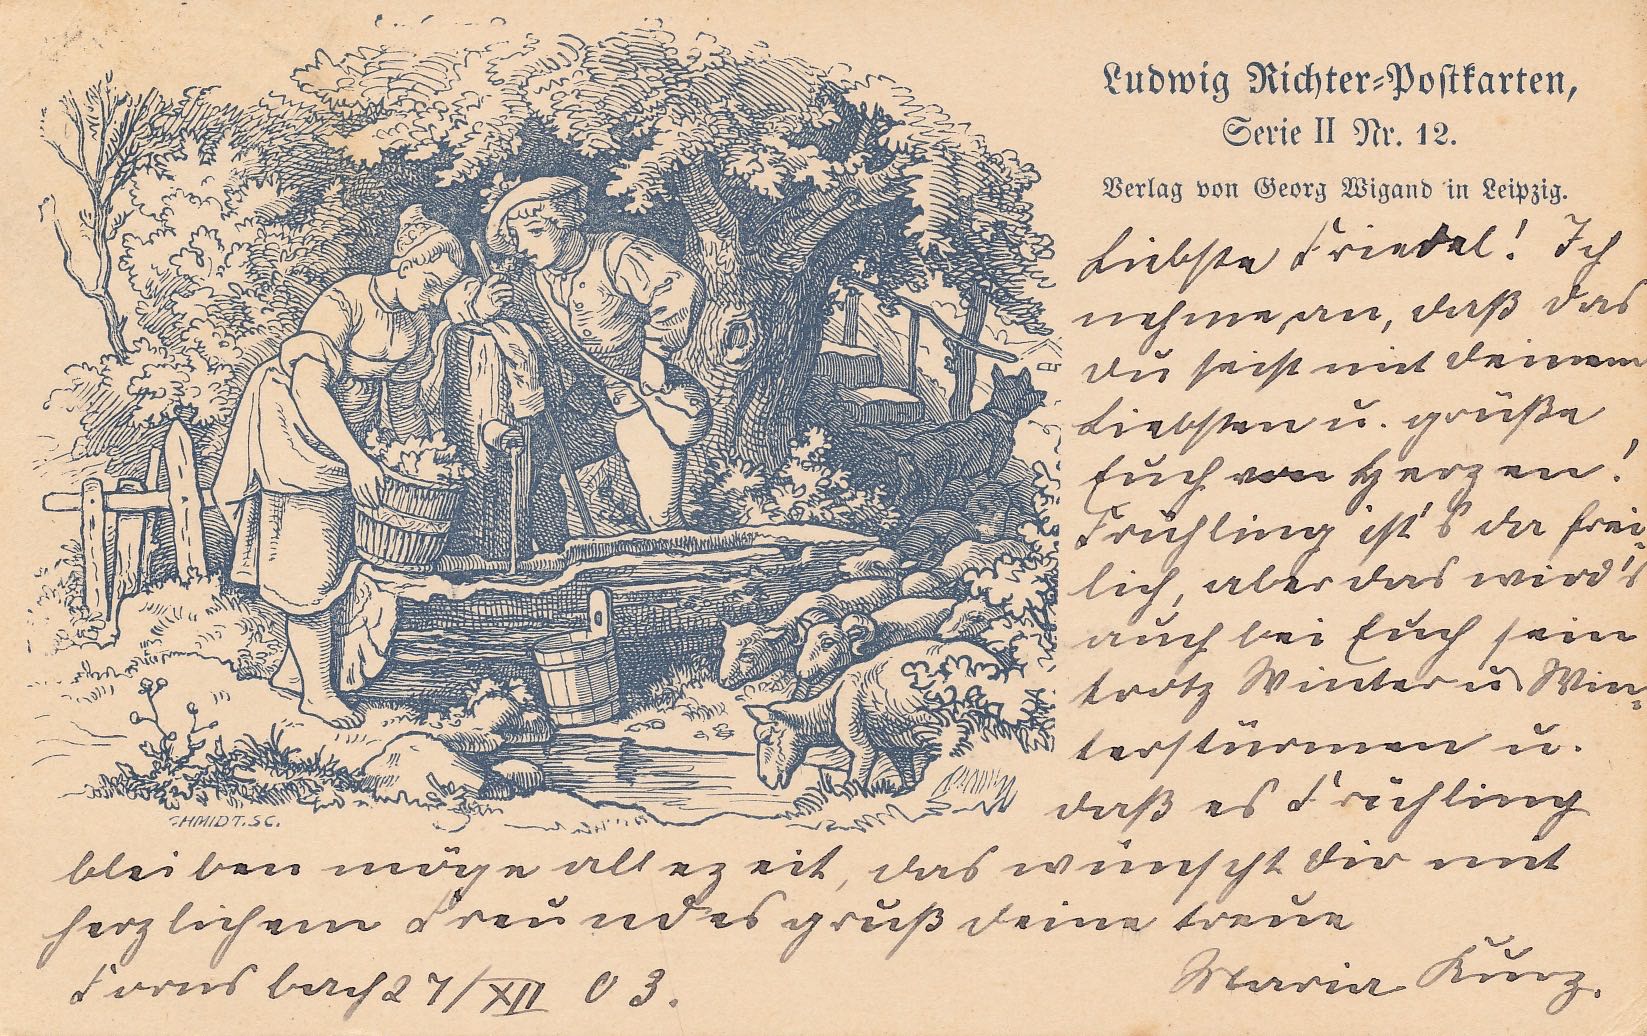 Ludwig Richter-Postkarten,
Serie II Nr. 12.
Verlag von Georg Wigand in Leipzig.
Liebste Friedel! Ich
nehme an, daß das
du seist mit deinem
Liebsten u. grüße
Euch von Herzen!
Frühling ist's da frei-
lich, aber das wird's
auch bei Euch sein
trotz Winter u. Win-
terstürmen u.
daß es Frühling
bleiben möge allezeit, das wünscht dir mit
herzlichem Freundesgruß deine treue
27/XII 03.
Maria Kurz.
CHMIDT. SC.